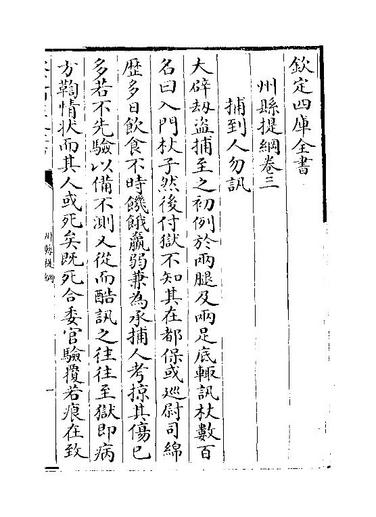 欽定四庫全書
州縣提綱卷三
捕到人勿訊
大辟刼盜捕至之初例於兩腿及兩足底輙訊杖數百
名曰入門杖子然後付獄不知其在都保或巡尉司綿
歴多日飲食不時饑餓羸弱兼為承捕人考掠其傷已
多若不先驗以備不測又從而酷訊之往往至獄即病
方鞫情狀而其人或死矣既死合委官驗覆若痕在致
州縣提綱
一